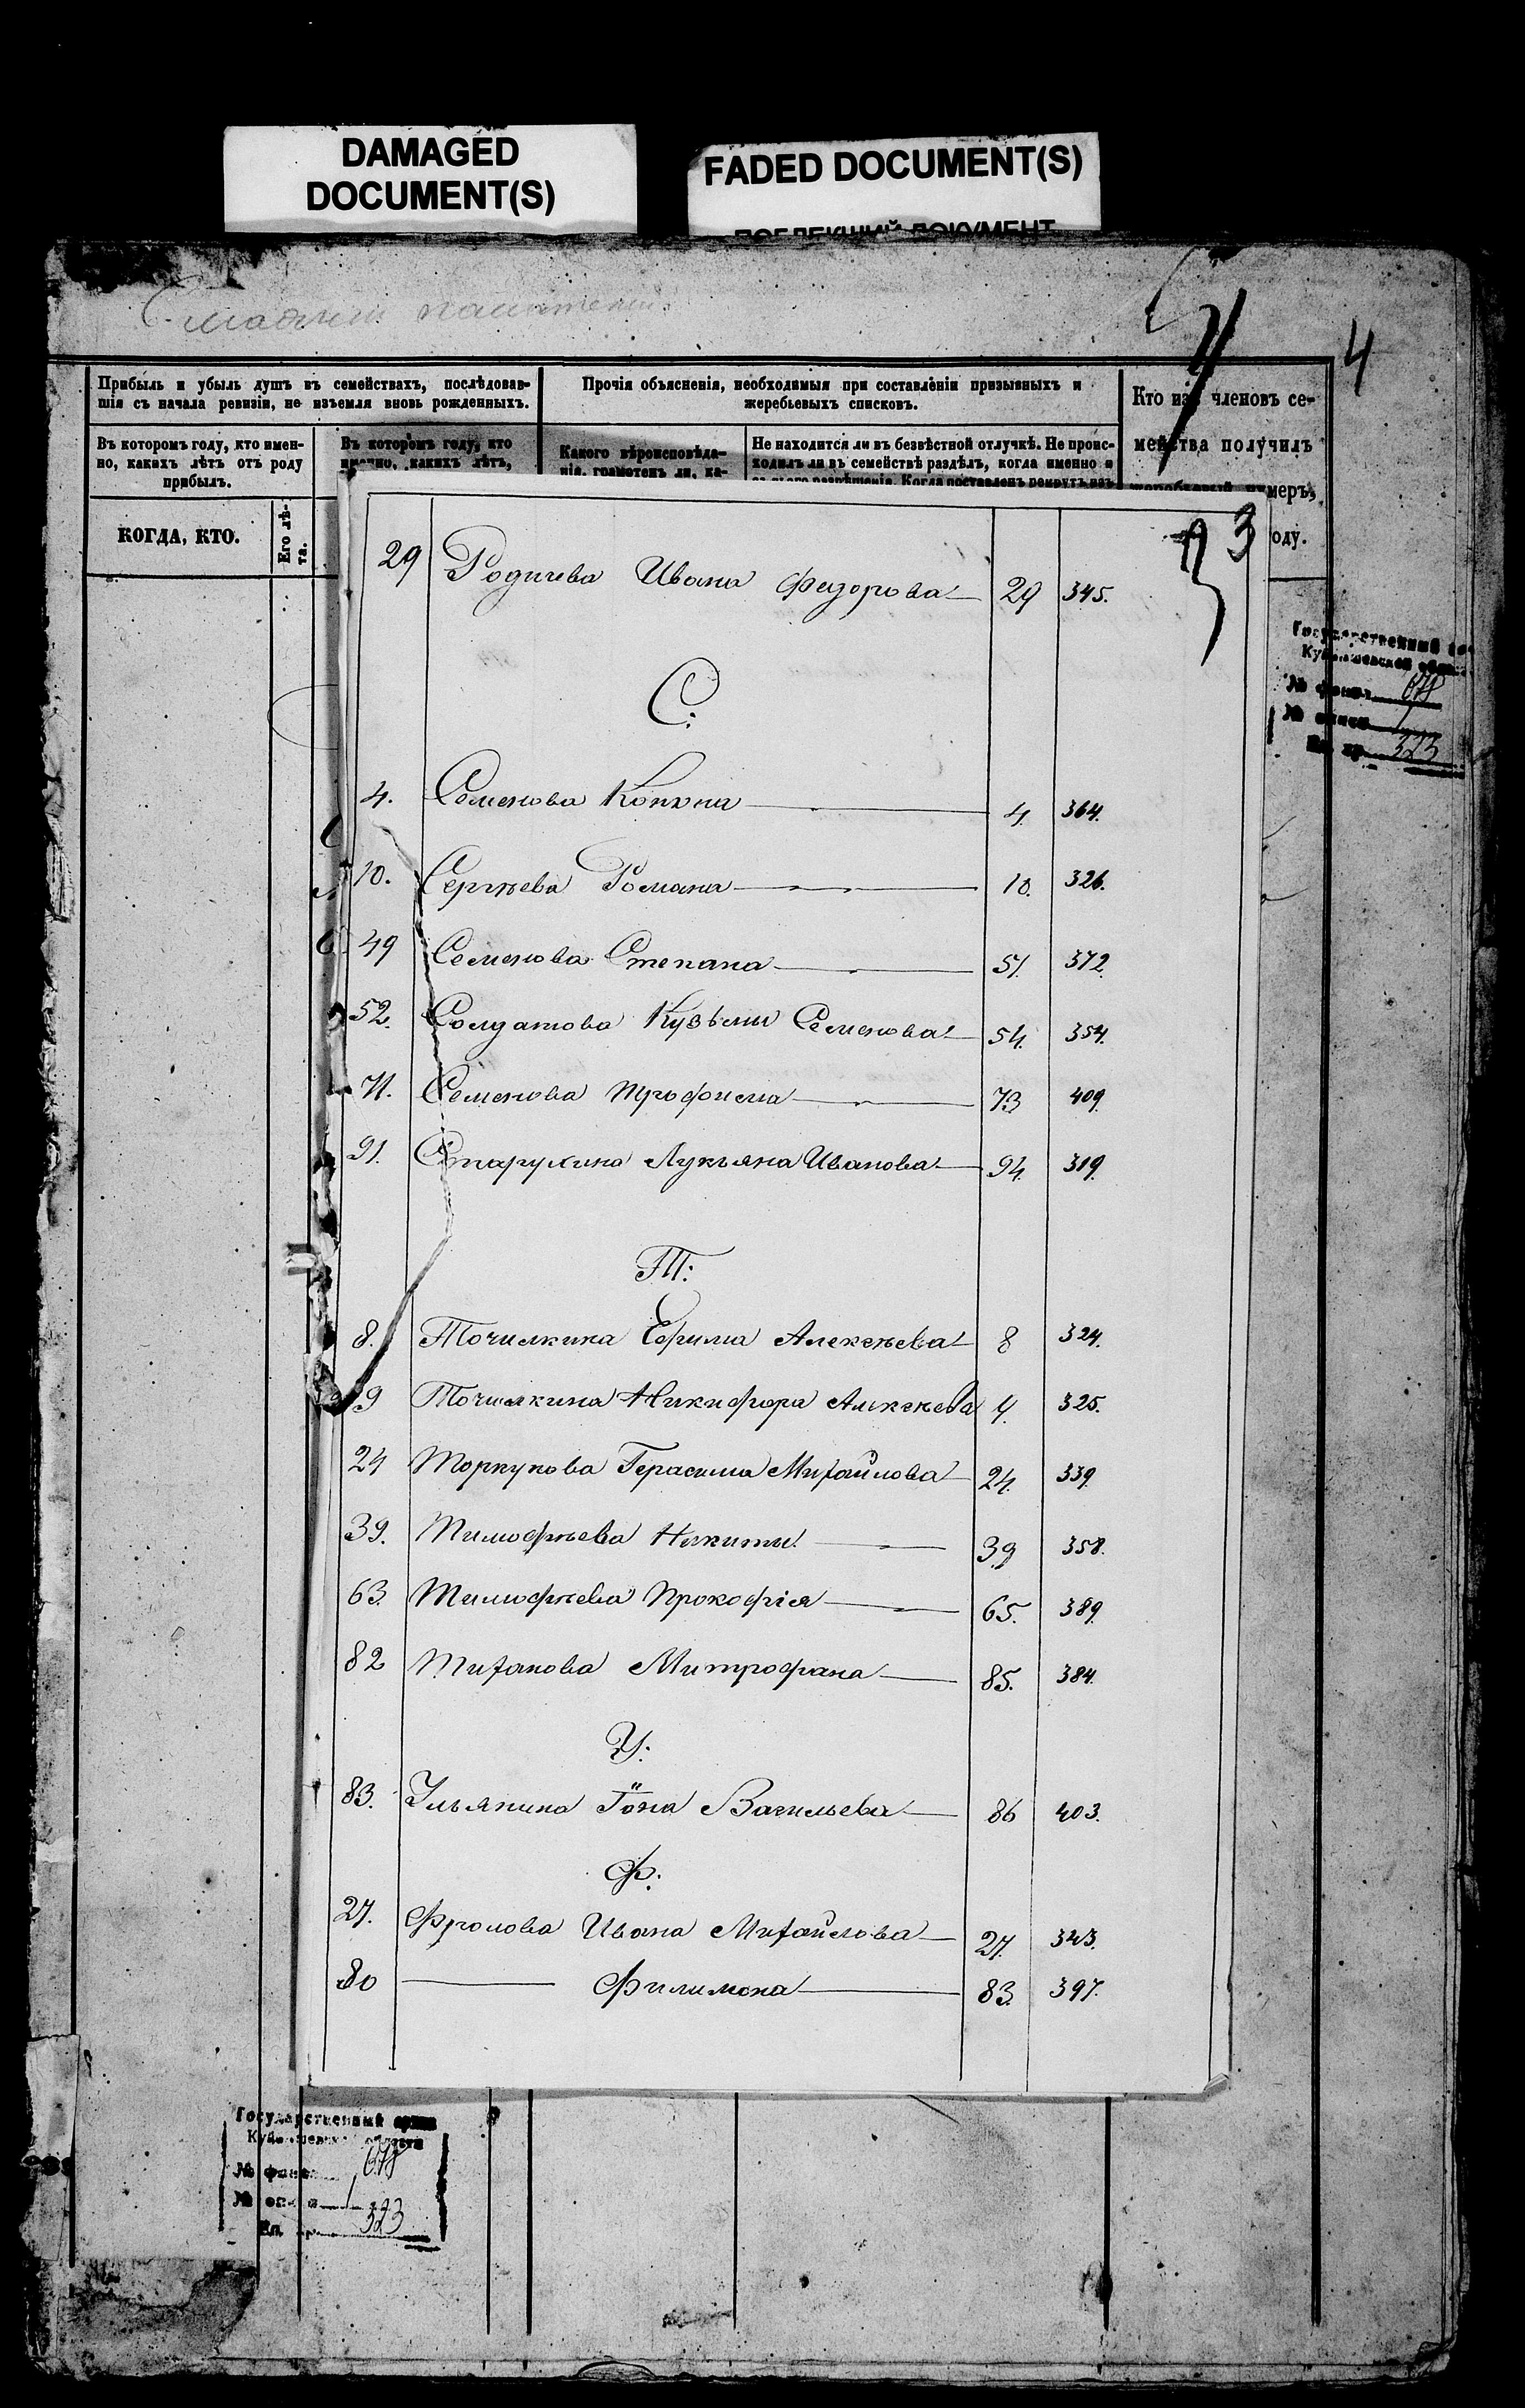 DAMAGED
DOCUMENT(S)
FADED DOCUMENT(S)
4
Прибыль и убыль душъ въ семействахъ, послѣдовав-
шія съ начала ревизіи, не изъемля вновь рожденныхъ.
Прочія объясненія, необходимыя при составленіи призывныхъ и
жеребьевыхъ списковъ.
Кто изъ членовъ се-
мейства получилъ
Въ которомъ году, кто имен-
но, какихъ лѣтъ отъ роду
прибылъ.
Въ которомъ году, кто
именно, какихъ лѣтъ,
Какого вѣроисповѣда-
нія, грамотенъ ли, ка-
Не находится ли въ безвѣстной отлучкѣ. Не происходилъ ли въ семействѣ раздѣлъ, когда именно и
КОГДА, КТО.
Его лѣ-
та.
3
29 Родичева Ивана Федорова 29 345.
С:
4. Семенова Конона 4. 364.
10. Сергѣева Романа 10. 326.
49 Семенова Степана 51. 372.
52. Солдатова Кузьмы Семенова 54. 354.
71. Семенова Трофима 73 409.
91. Старухина Лукьяна Иванова 94. 319.
Т:
8. Точилкина Ефима Алексѣева 8 324.
9 Точилкина Никифора Алексѣева 9. 325.
24 Торкунова Герасима Михайлова 24. 339.
39. Тимофѣева Никиты 39 358.
63. Тимофѣева Прокофія 65. 389.
82 Титанова Митрофана 85. 384.
У:
83. Ульянина Іона Васильева 86 403.
Ф:
27. Фролова Ивана Михайлова 27. 343.
80 Филимона 83. 397.
Государственный
Куйбышевской
№ фонд 678
№ описи 1
Ед. хр. 323
Государственный архив
Куйбышевской области
№ фонд 678
№ описи 1
Ед. хр. 323